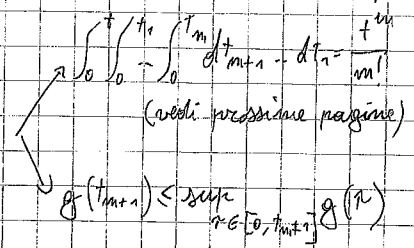 ∫₀ᵗ ∫₀^{t₁} … ∫₀^{t_m} dt_{m+1} … dt₁ = t^m / m!
(vedi prossime pagine)
g(t_{m+1}) ≤ sup_{r∈[0, t_{m+1}]} g(r)